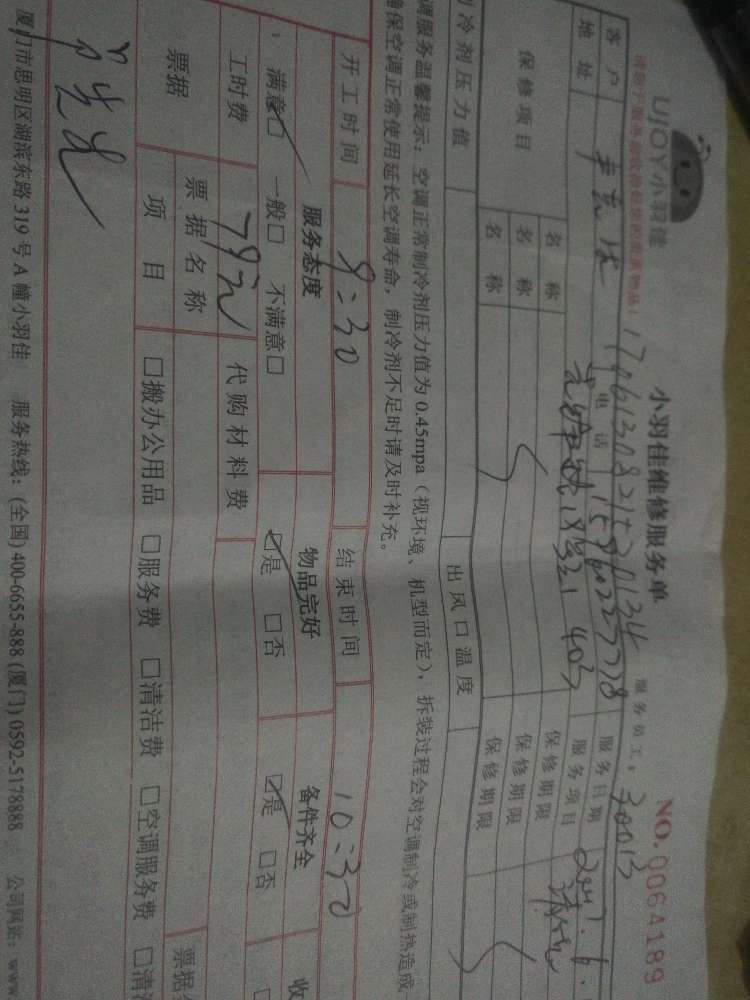 UJOY小羽佳
小羽佳维修服务单
NO.0064189
服务员工：30013
客户 电话 服务日期
地址 403 服务项目
保修项目 名称 保修期限
名称 保修期限
名称 保修期限
冷剂压力值 出风口温度
调服务温馨提示：空调正常制冷剂压力值为0.45mpa（视环境、机型而定），拆装过程会对空调制冷或制热造成
确保空调正常使用延长空调寿命，制冷剂不足时请及时补充。
开工时间 9:30 结束时间 10:30
服务态度 物品完好 备件齐全 收
满意□ 一般□ 不满意□ □是 □否 □是 □否
工时费 79元 代购材料费
票据 票据名称 票据
项目 □搬办公用品 □服务费 □清洁费 □空调服务费 □清
厦门市思明区湖滨东路319号A幢小羽佳 服务热线：(全国) 400-6655-888 (厦门) 0592-5178888 公司网站：www